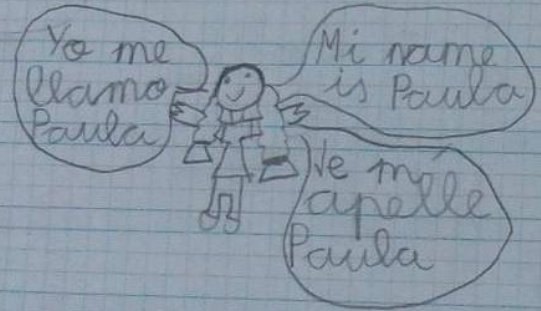 Yo me
llamo
Paula
Mi name
is Paula
Ve me
apelle
Paula